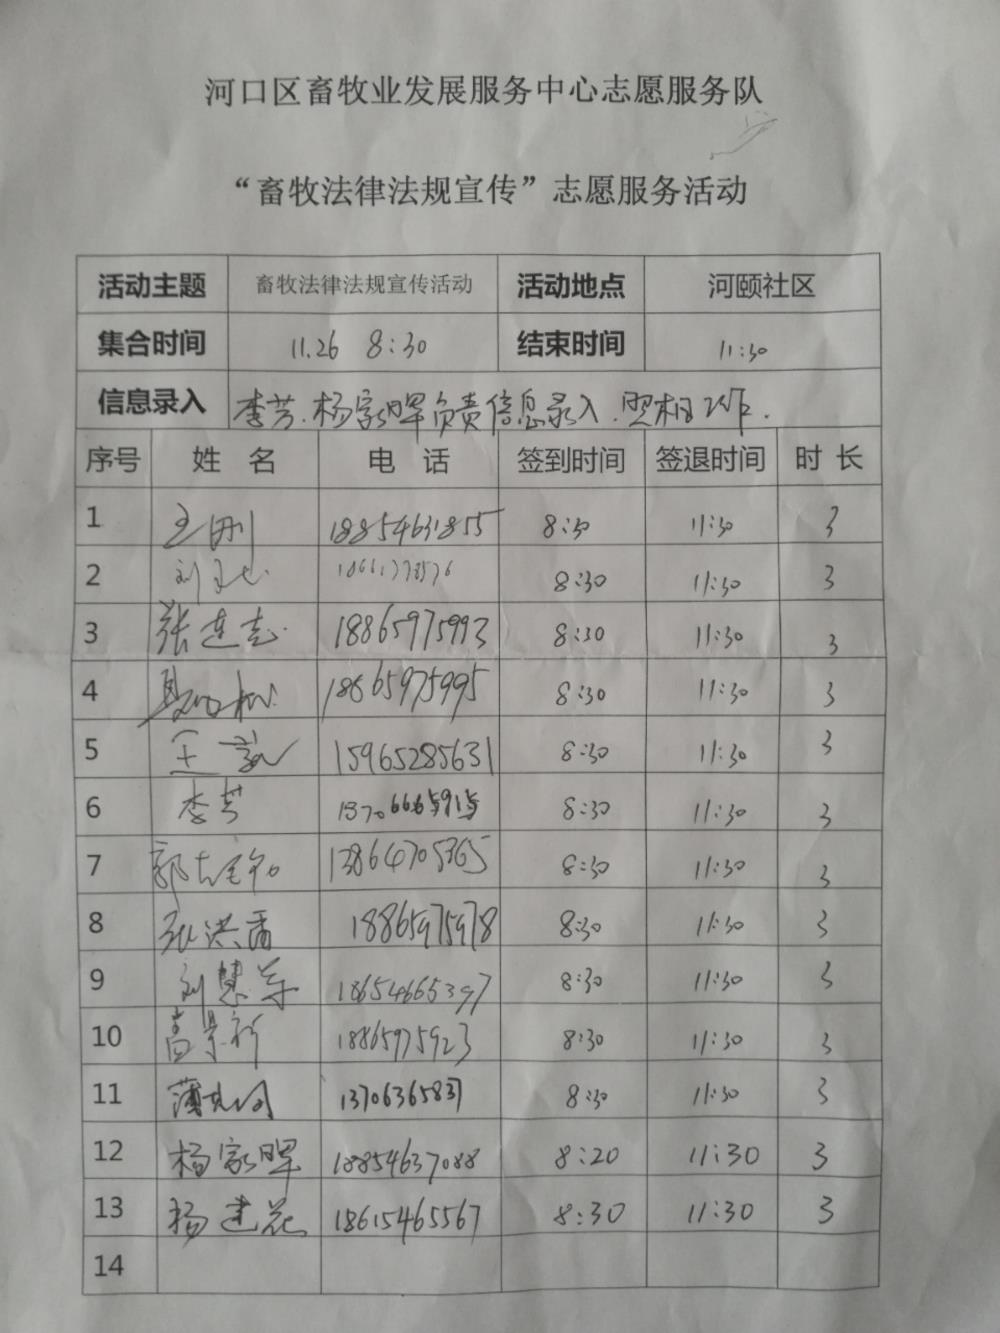 河口区畜牧业发展服务中心志愿服务队
“畜牧法律法规宣传”志愿服务活动
活动主题 畜牧法律法规宣传活动 活动地点 河颐社区
集合时间 11.26 8:30 结束时间 11:30
信息录入 李芳.杨家晖负责信息录入.照相工作.
序号 姓名 电话 签到时间 签退时间 时长
1 王刚 18854631855 8:30 11:30 3
2 刘 8:30 11:30 3
3 张连志 18865975993 8:30 11:30 3
4 18865975995 8:30 11:30 3
5 王 15965285631 8:30 11:30 3
6 李芳 13706665915 8:30 11:30 3
7 郭 13864705365 8:30 11:30 3
8 张洪 18865975978 8:30 11:30 3
9 刘慧军 18654665397 8:30 11:30 3
10 高景新 18865975923 8:30 11:30 3
11 薄 13706365837 8:30 11:30 3
12 杨家晖 18854637088 8:20 11:30 3
13 杨建花 18615465567 8:30 11:30 3
14